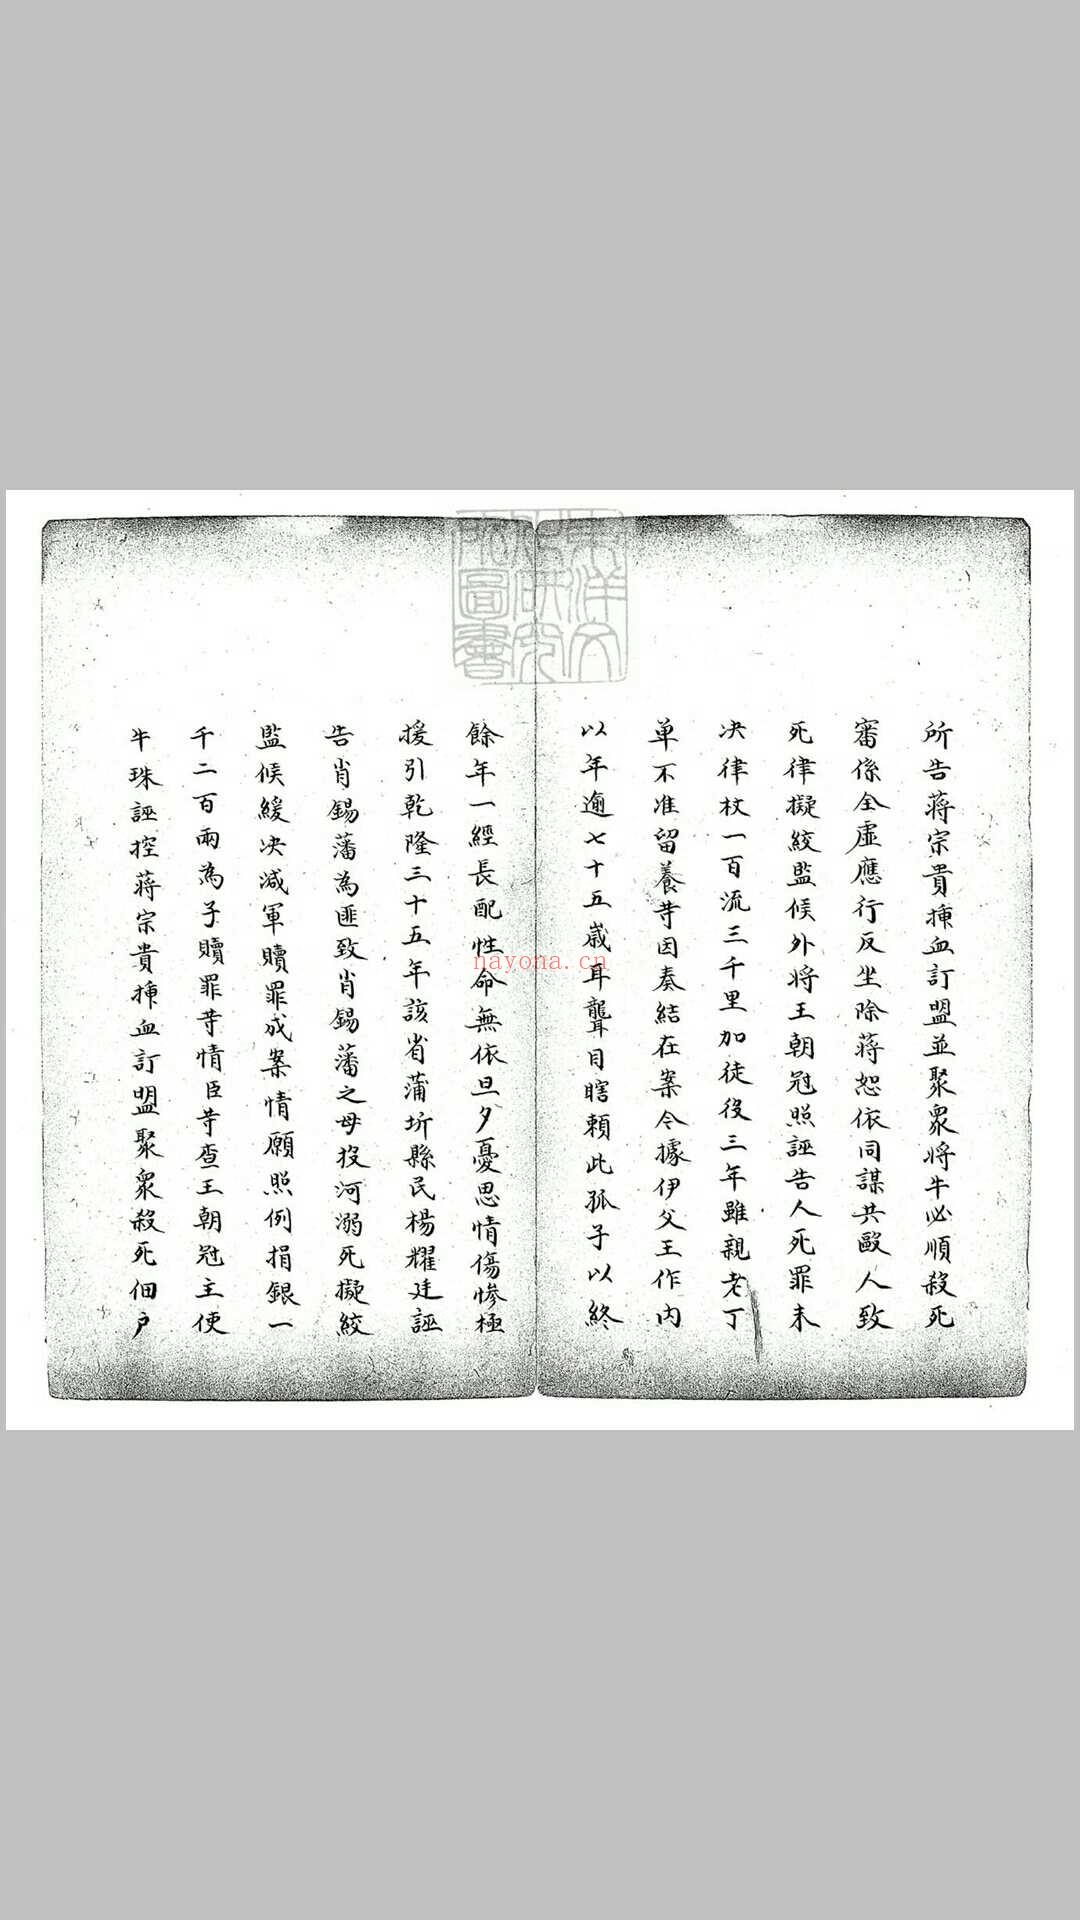 所告蔣宗貴揷血訂盟並聚衆将牛必順殺死
審係全虛應行反坐除蔣恕依同謀共毆人致
死律擬絞監候外将王朝冠照誣告人死罪未
决律杖一百流三千里加徒役三年雖親老丁
单不准留養䓁因奏結在案令據伊父王作内
以年逾七十五歲耳聾目瞎賴此孤子以終
餘年一經長配性命無依旦夕憂思情傷慘極
援引乾隆三十五年該省蒲圻縣民楊耀廷誣
告肖錫藩為匪致肖錫藩之母投河溺死擬絞
監候緩决减軍贖罪成案情願照例捐銀一
千二百兩為子贖罪䓁情臣䓁查王朝冠主使
牛珠誣控蔣宗貴揷血訂盟聚衆殺死佃户
東洋文
化研究
所圖書
nayona.cn